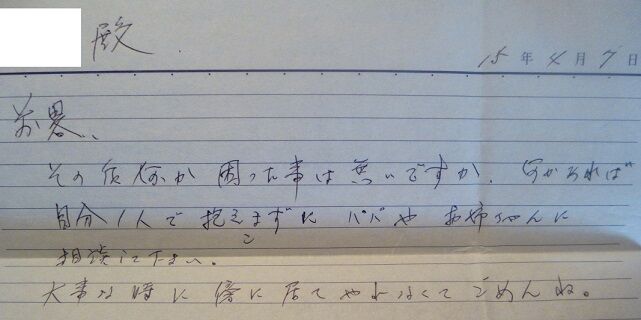 殿
15年4月7日
前略、
その後何か困った事は無いですか。何かあれば
自分1人で抱えこまずに パパや お姉ちゃんに
相談して下さい。
大事な時に傍に居てやれなくてごめんね。